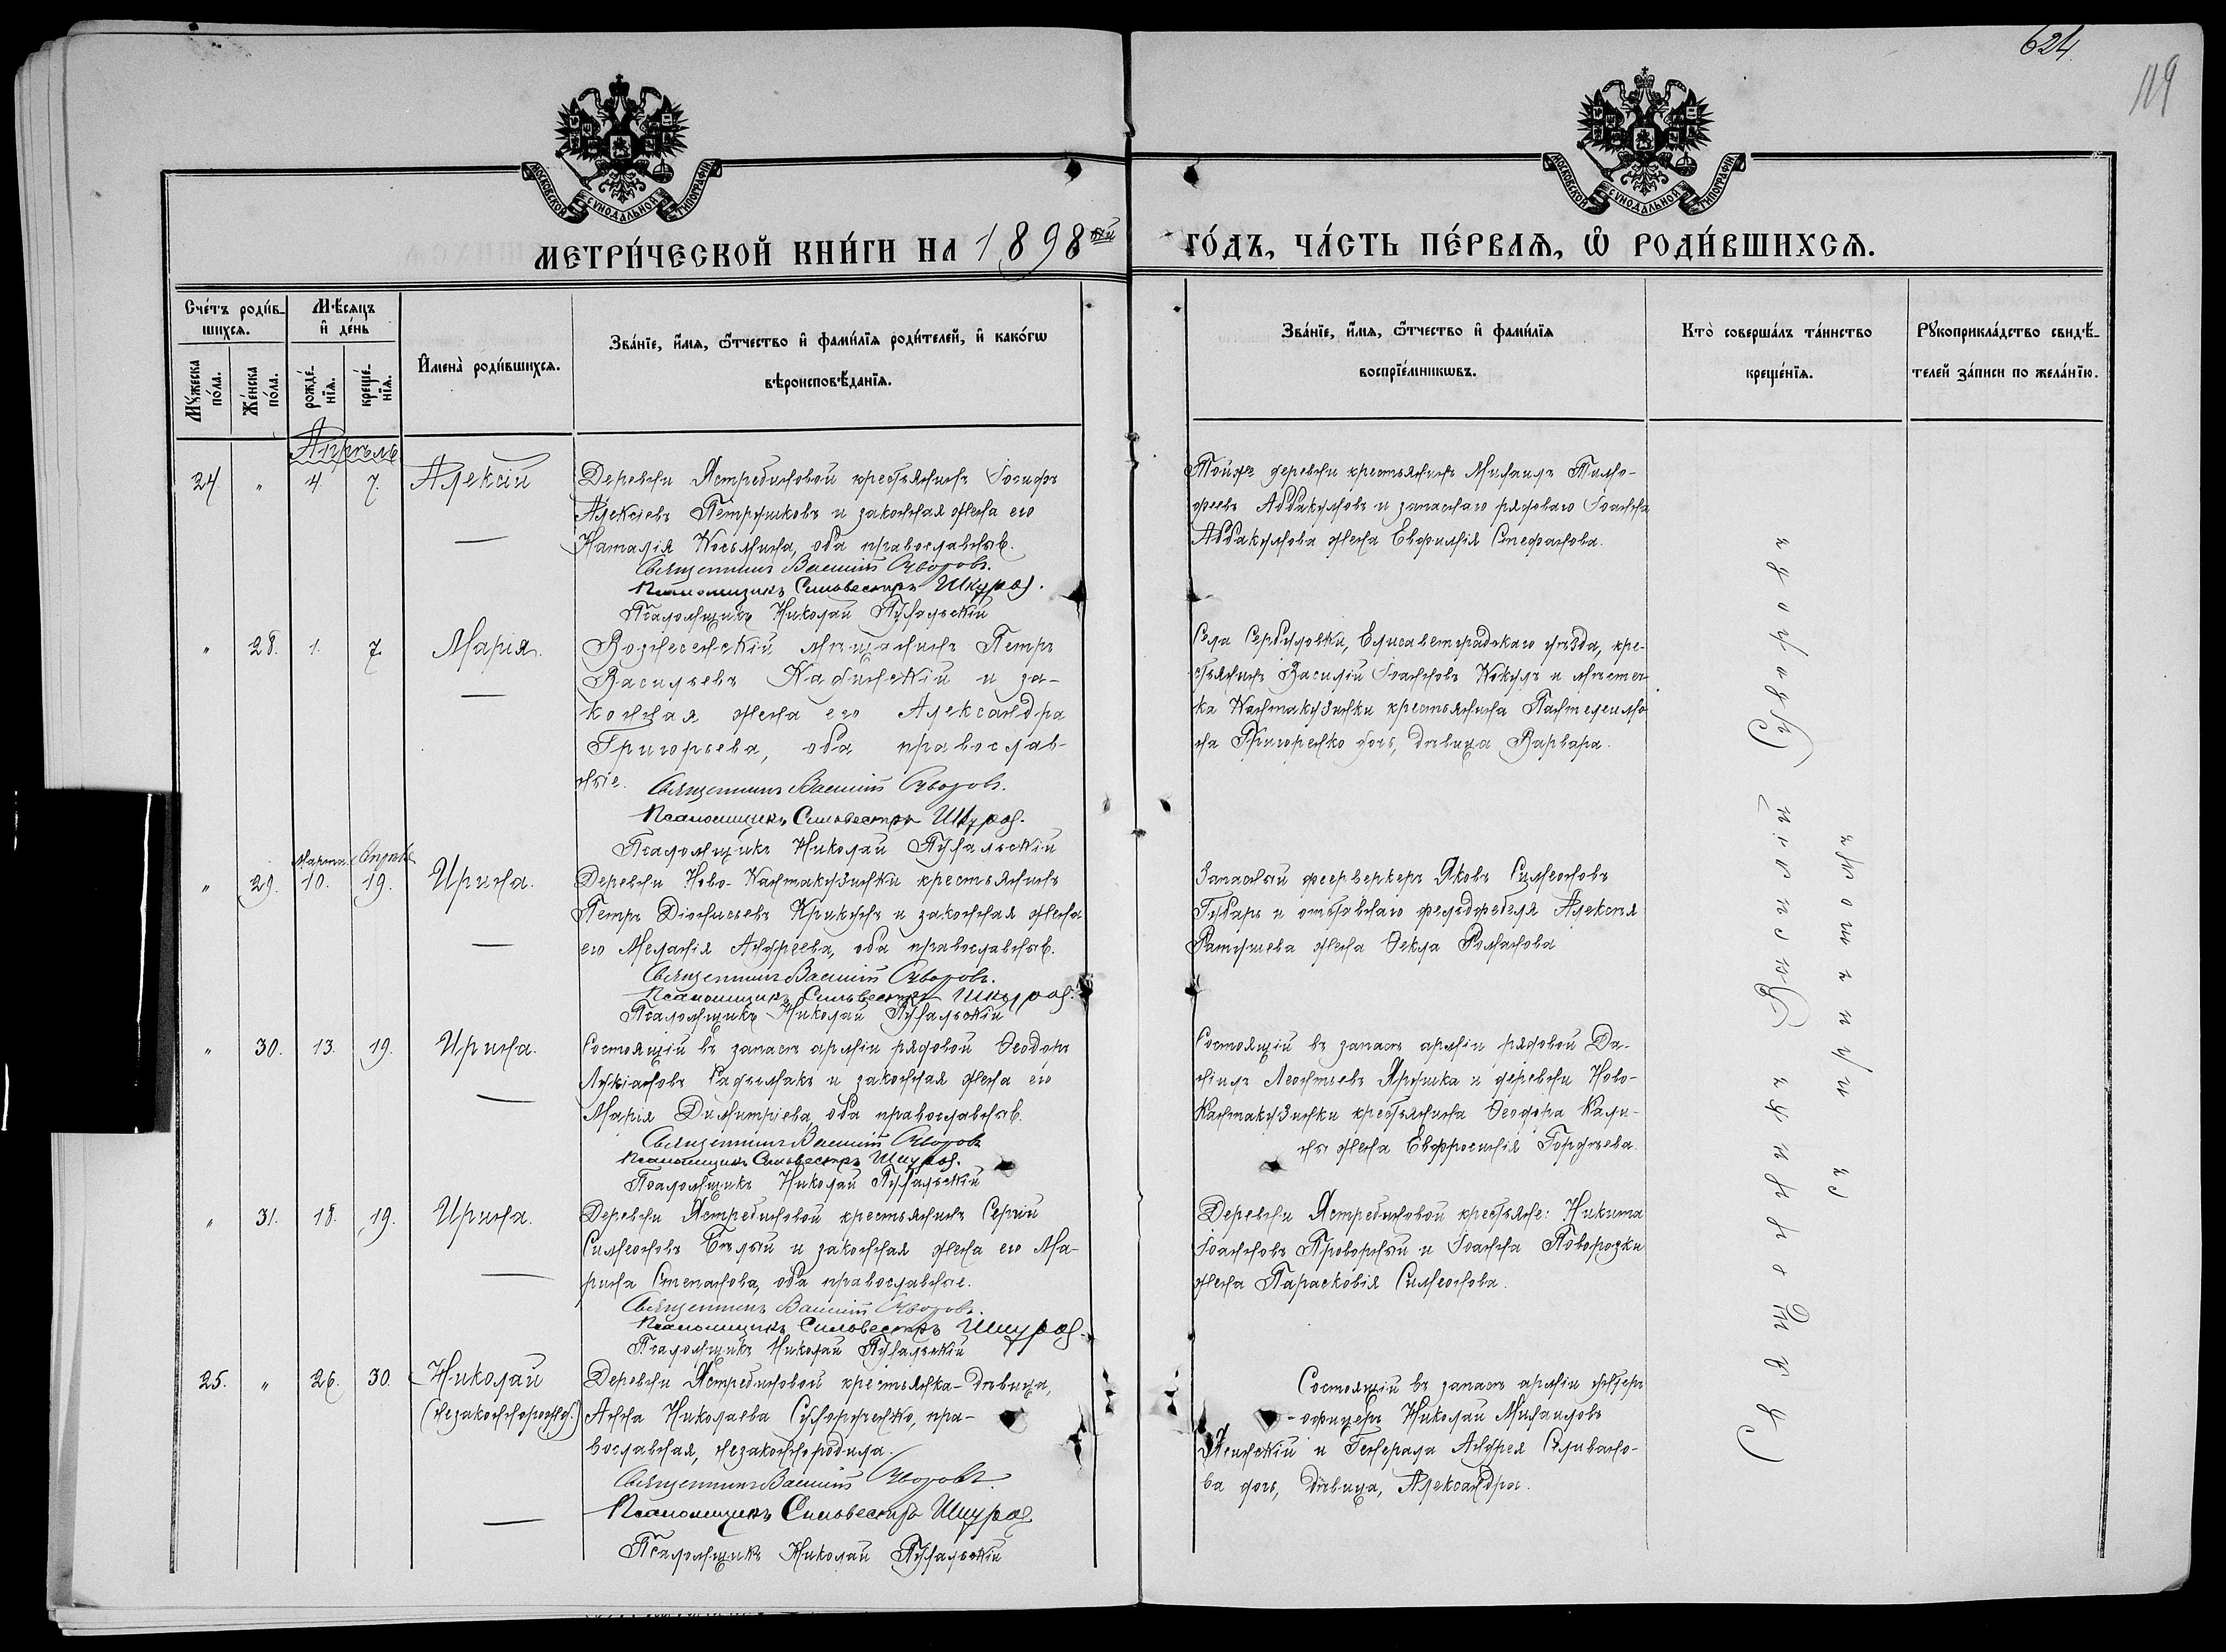 624
119
МОСКОВСКОЙ СѴНОДАЛЬНОЙ ТИПОГРАФІИ
МОСКОВСКОЙ СѴНОДАЛЬНОЙ ТИПОГРАФІИ
МЕТРИ́ЧЕСКОЙ КНИ́ГИ НА 1898ый ГО́ДЪ, ЧА́СТЬ ПЕ́РВАѦ, Ѡ҆ РОДИ́ВШИХСѦ.
Сче́тъ роди́в-
шихсѧ.
Мѣ́сѧцъ
и҆ де́нь
Мꙋ́жеска по́ла.
Же́нска по́ла.
рожде́-
нїѧ.
креще́-
нїѧ.
И҆мена̀ роди́вшихсѧ.
Зва́нїе, и҆́мѧ, ѻ҆́тчество и҆ фами́лїѧ роди́телей, и҆ како́гѡ
вѣроисповѣ́данїѧ.
Зва́нїе, и҆́мѧ, ѻ҆́тчество и҆ фами́лїѧ
воспрїе́мникѡвъ.
Кто̀ соверша́лъ та́инство
креще́нїѧ.
Рꙋкоприкла́дство свидѣ́-
телей за́писи по жела́нїю.
Апрѣль
24 " 4. 7. Алексій
Деревни Ястребиновой крестьянинъ Іосифъ
Алексіевъ Петрушковъ и законная жена его
Наталія Косьмина, оба православные.
Священникъ Василій Яворовъ.
Псаломщикъ Сильвестръ Шкура.
Псаломщикъ Николай Пухальскій
Тойже деревни крестьянинъ Михаилъ Тимо-
феевъ Аввакумовъ и запаснаго рядоваго Іоанна
Аввакумова жена Евфимія Стефанова.
" 28. 1. 7. Марія.
Вознесенскій мѣщанинъ Петръ
Васильевъ Кабинскій и за-
конная жена его Александра
Григорьева, оба православ-
ные.
Священникъ Василій Яворовъ.
Псаломщикъ Сильвестръ Шкура.
Псаломщикъ Николай Пухальскій
Села Сербуловки, Елисаветградскаго уѣзда, кре-
стьянинъ Василій Іоанновъ Кокулъ и мѣстеч-
ка Кантакузинки крестьянина Пантелеимо-
на Григоренко дочь, дѣвица Варвара.
Марта. Апрѣля
" 29. 10. 19. Ирина.
Деревни Ново-Кантакузинки крестьянинъ
Петръ Діонисьевъ Крикунъ и законная жена
его Меланія Андреева, оба православные.
Священникъ Василій Яворовъ.
Псаломщикъ Сильвестръ Шкура.
Псаломщикъ Николай Пухальскій
Запасный феерверкеръ Яковъ Симеоновъ
Губарь и отставнаго фельдфебеля Алексія
Ратушева жена Ѳекла Романова
" 30. 13. 19. Ирина.
Состоящій въ запасѣ арміи рядовой Ѳеодоръ
Лукіановъ и законная жена его
Марія Димитріева, оба православные.
Священникъ Василій Яворовъ
Псаломщикъ Сильвестръ Шкура.
Псаломщикъ Николай Пухальскій
Состоящій въ запасѣ арміи рядовой Да-
ніилъ Леонтьевъ Ярушка и деревни Ново-
Кантакузинки крестьянина Ѳеодора Кали-
ны жена Евфросинія Гордѣева.
" 31. 18. 19. Ирина.
Деревни Ястребиновой крестьянинъ Сергій
Симеоновъ Бѣлый и законная жена его Ма-
рина Степанова, оба православные.
Священникъ Василій Яворовъ.
Псаломщикъ Сильвестръ Шкура.
Псаломщикъ Николай Пухальскій
Деревни Ястребиновой крестьяне: Никита
Іоанновъ Проворный и Іоанна Поворозки
жена Парасковія Симеонова.
25. " 26. 30. Николай
(незаконнорожд.)
Деревни Ястребиновой крестьянка-дѣвица,
Анна Николаева Сухорученко, пра-
вославная, незаконнородила.
Священникъ Василій Яворовъ.
Псаломщикъ Сильвестръ Шкура
Псаломщикъ Николай Пухальскій
Состоящій въ запасѣ арміи унтеръ
-офицеръ Николай Михаиловъ
Ясинскій и Генерала Андрея Селивано-
ва дочь, дѣвица, Александра.
Священникъ Василій Яворовъ
съ причтомъ